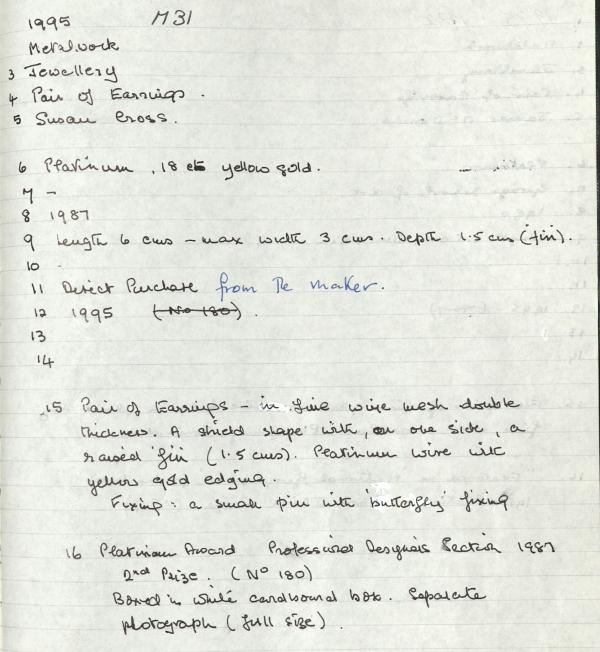 1995 M31
Metalwork
3 Jewellery
4 Pair of Earrings.
5 Susan Cross.
6 Platinum, 18 ct yellow gold.
7 -
8 1987
9 Length 6 cms - max width 3 cms. Depth 1.5 cms (fin).
10
11 Direct Purchase from the maker.
12 1995 (No 180).
13
14
15 Pair of Earrings - in fine wire mesh double
thickness. A shield shape with, on one side, a
raised 'fin' (1.5 cms). Platinum wire with
yellow gold edging.
Fixing: a small pin with 'butterfly' fixing
16 Platinum Award Professional Designers Section 1987
2nd Prize. (No 180)
Boxed in white cardboard box. Separate
photograph (full size).